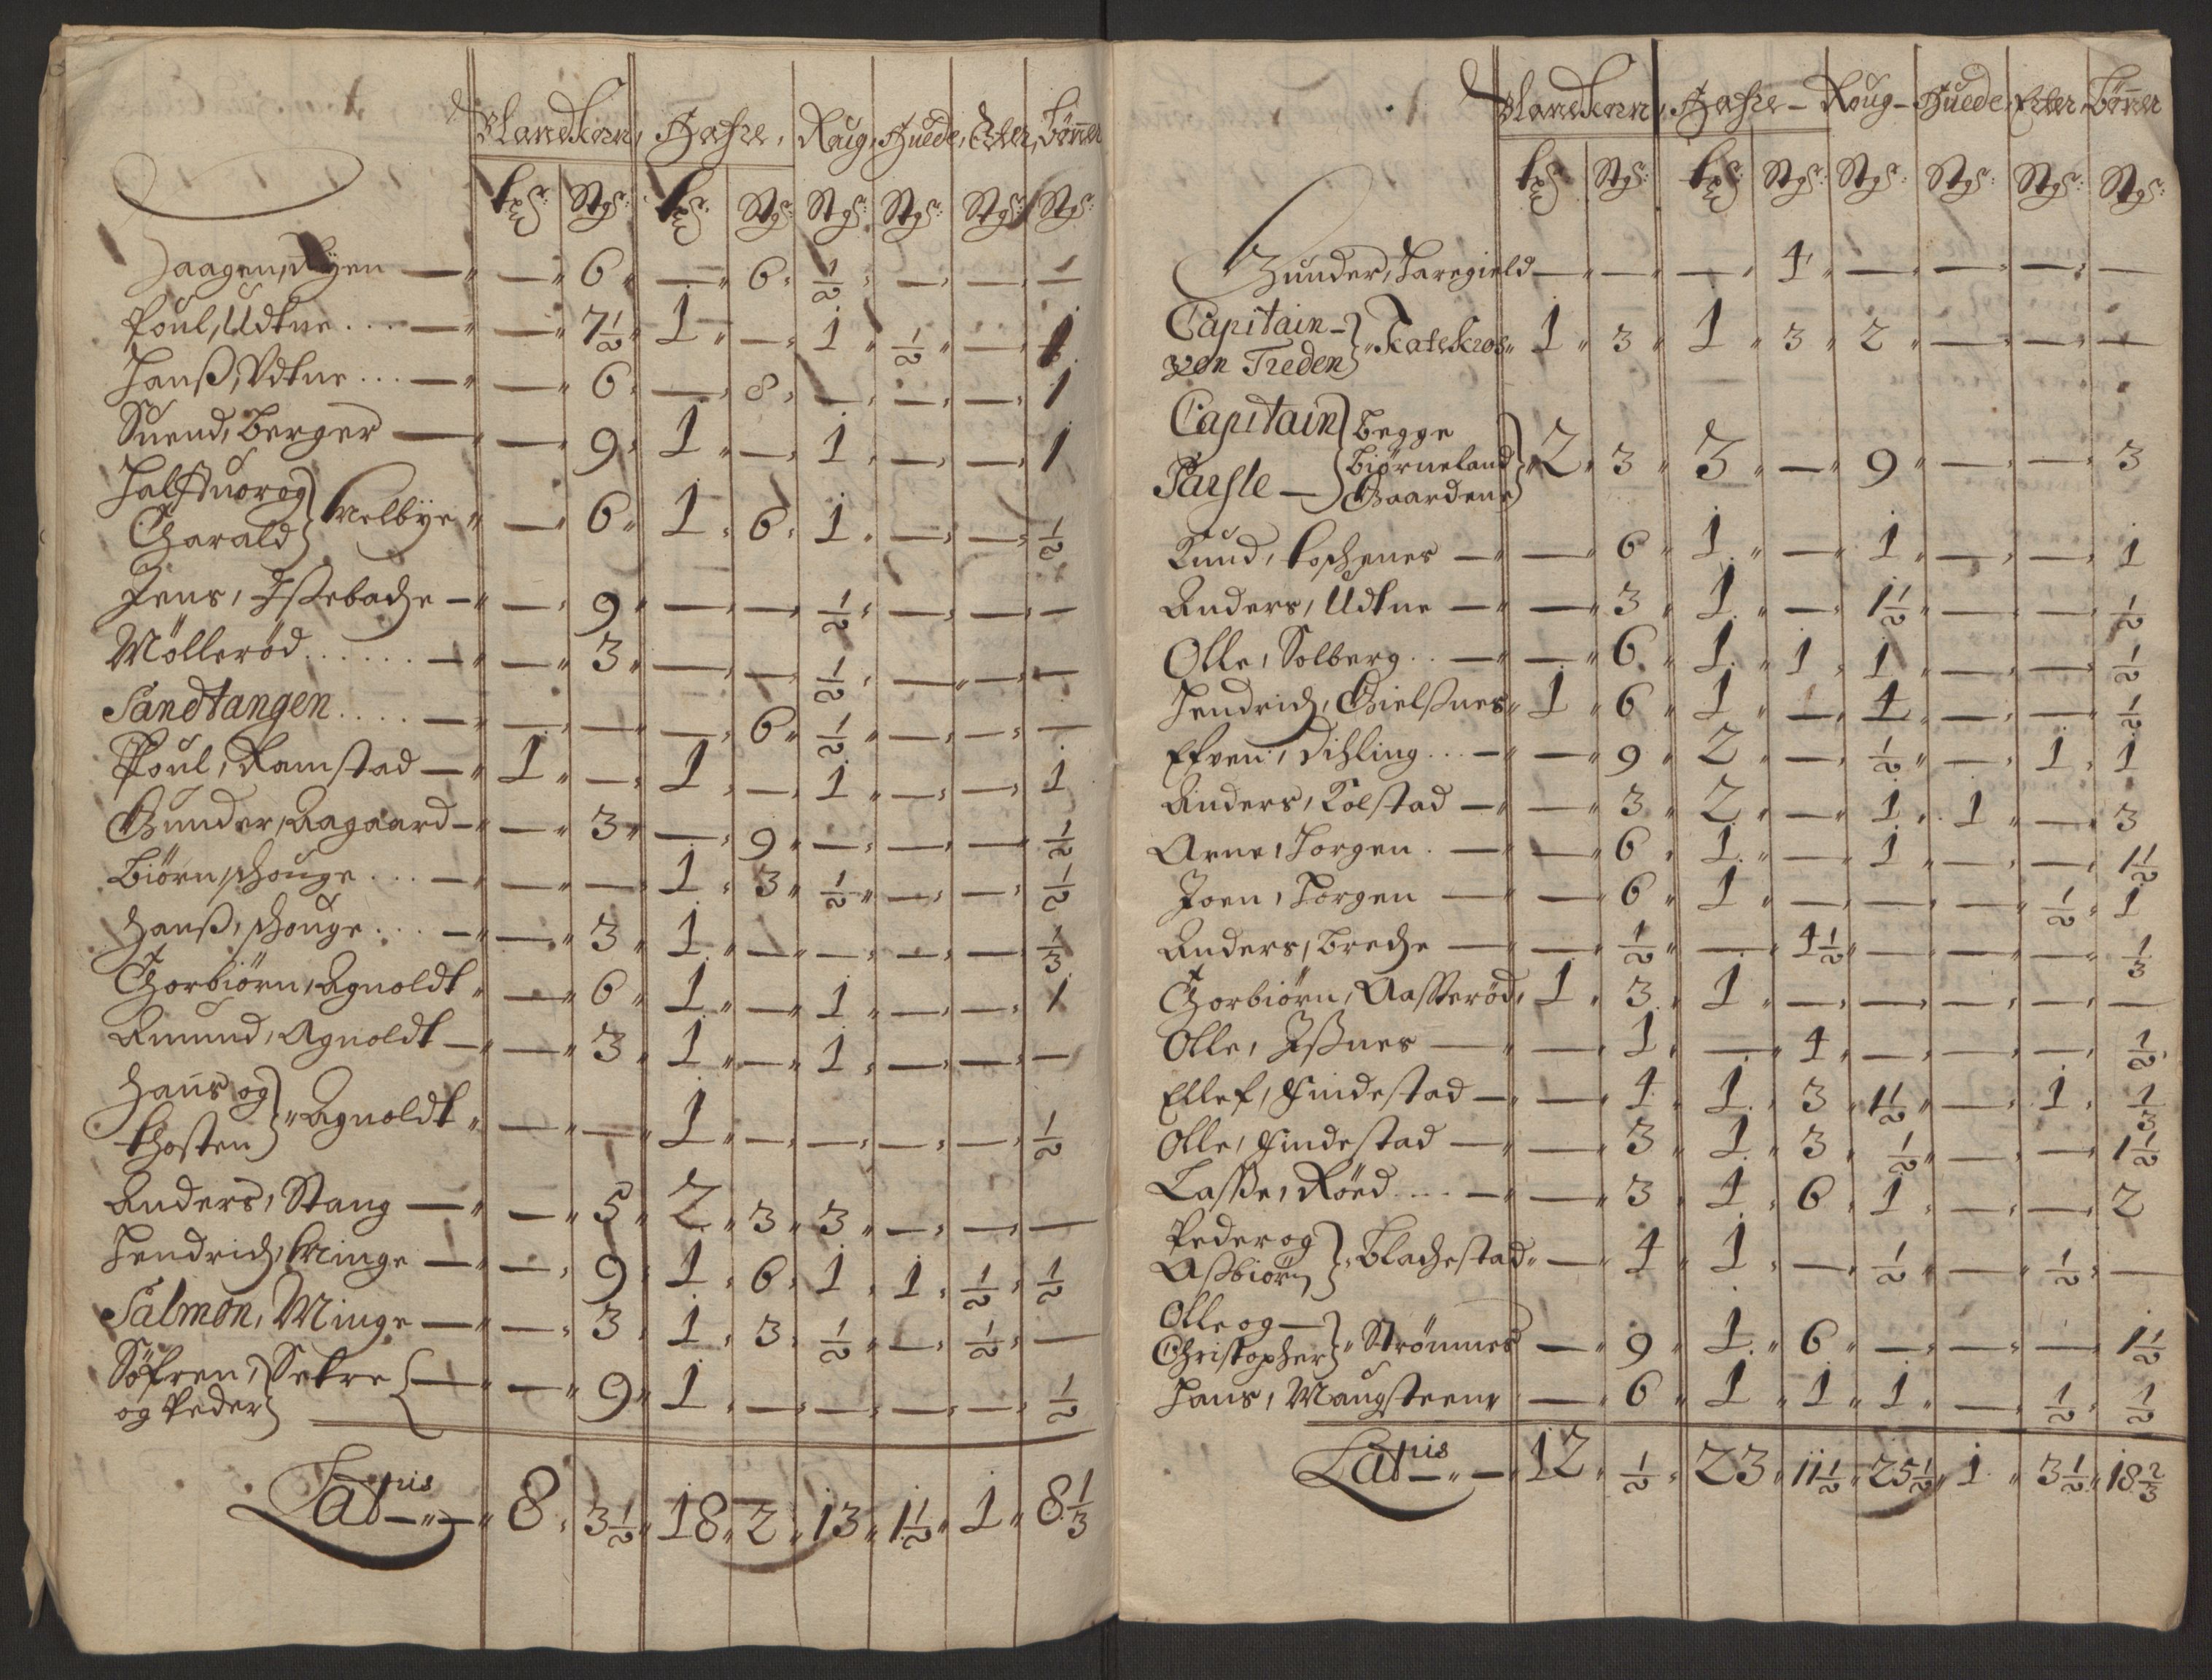 Blandkorn, Hafre, Roug, Huede, Erter, Bønner
tr: Stpr: tr: Stpr: Stpr: Stpr: Stpr: Stpr:
Haagen, Ryen — — 6 — 6 1/2 — — —
Poul, Udtne ... — — 7 1/2 1 — 1 1/2 — 1
Hanß, Udtne ... — — 6 — 8 — — — 1
Suend, Berger — — 9 1 — 1 — — 1
Halfuor og
Harald } Melbye — 6 1 6 1 — — 1/2
Jens, Ißebache — — 9 — — 1/2 — — —
Möllerød ...... — — 3 — — 1/2 — — —
Sandtangen .... — — — — 6 1/2 — — —
Poul, Ramstad — 1 — 1 — 1 — — 1
Gunder, Aagaard — — 3 — 9 — — — 1/2
Biørn, Houge ... — — — 1 3 1/2 — — 1/2
Hanß, Houge ... — — 3 1 — — — — 1/3
Thorbiørn, Agnoldt — 6 1 — 1 — — 1
Amund, Agnoldt — — 3 1 — 1 — — —
Hans og
Thosten } Agnoldt — — 1 — — — — 1/2
Anders, Stang — — 5 2 3 3 — — —
Hendrich, Minge — — 9 1 6 1 1 1/2 1/2
Salmon, Minge — — 3 1 3 1/2 — 1/2 —
Söfren,
og Peder } Setre { — — 9 1 — — — — 1/2
Latpis — 8 3 1/2 18 2 13 1 1/2 1 8 1/3
Blandkorn, Hafre — Roug — Huede, Erter, Bønner
tr: Stpr: tr: Stpr: Stpr: Stpr: Stpr: Stpr:
Gunder, Taregield — — — 4 — — — —
Capitain —
von Treden } Katekros 1 3 1 3 2 — — —
Capitain } Begge
Biørneland } 2 3 3 — 9 — — 3
— Gaardene
Knud, — — 6 1 — 1 — — 1
Anders, Udtne — — 3 1 — 1 1/2 — — 1/2
Olle, Solberg .. — — 6 1 1 1 — — 1/2
Hendrich, Gielßnes 1 6 1 — 4 — — 1/2
Efven, Dihling ... — — 9 2 — 1/2 — 1 1
Anders, Kolstad — — 3 2 — 1 1 — 3
Arne, Torgen . — — 6 1 — 1 — — 1 1/2
Joen, Torgen — — 6 1 — — — 1/2 1
Anders, Breche — — 1/2 — 4 1/2 — — — 1/3
Thorbiørn, Aasterød, 1 3 1 — — — — —
Olle, Ißnes — — 1 — 4 — — — 1/2
Ellef, Findestad — — 4 1 3 1 1/2 — 1 1/3
Olle, Findestad — — 3 1 3 1/2 — — 1 1/2
Lasse, Röed .... — — 3 1 6 1 — — 2
Peder og
Aßbiørn } Blachestad — 4 1 — 1/2 — 1/2 —
Olle og —
Christopher } Strømnes — 9 1 6 — — — 1 1/2
Hans, Maugsteene — 6 1 1 1 — 1/2 1/2
Latpis — 12 1/2 23 11 1/2 25 1/2 1 3 1/2 18 2/3